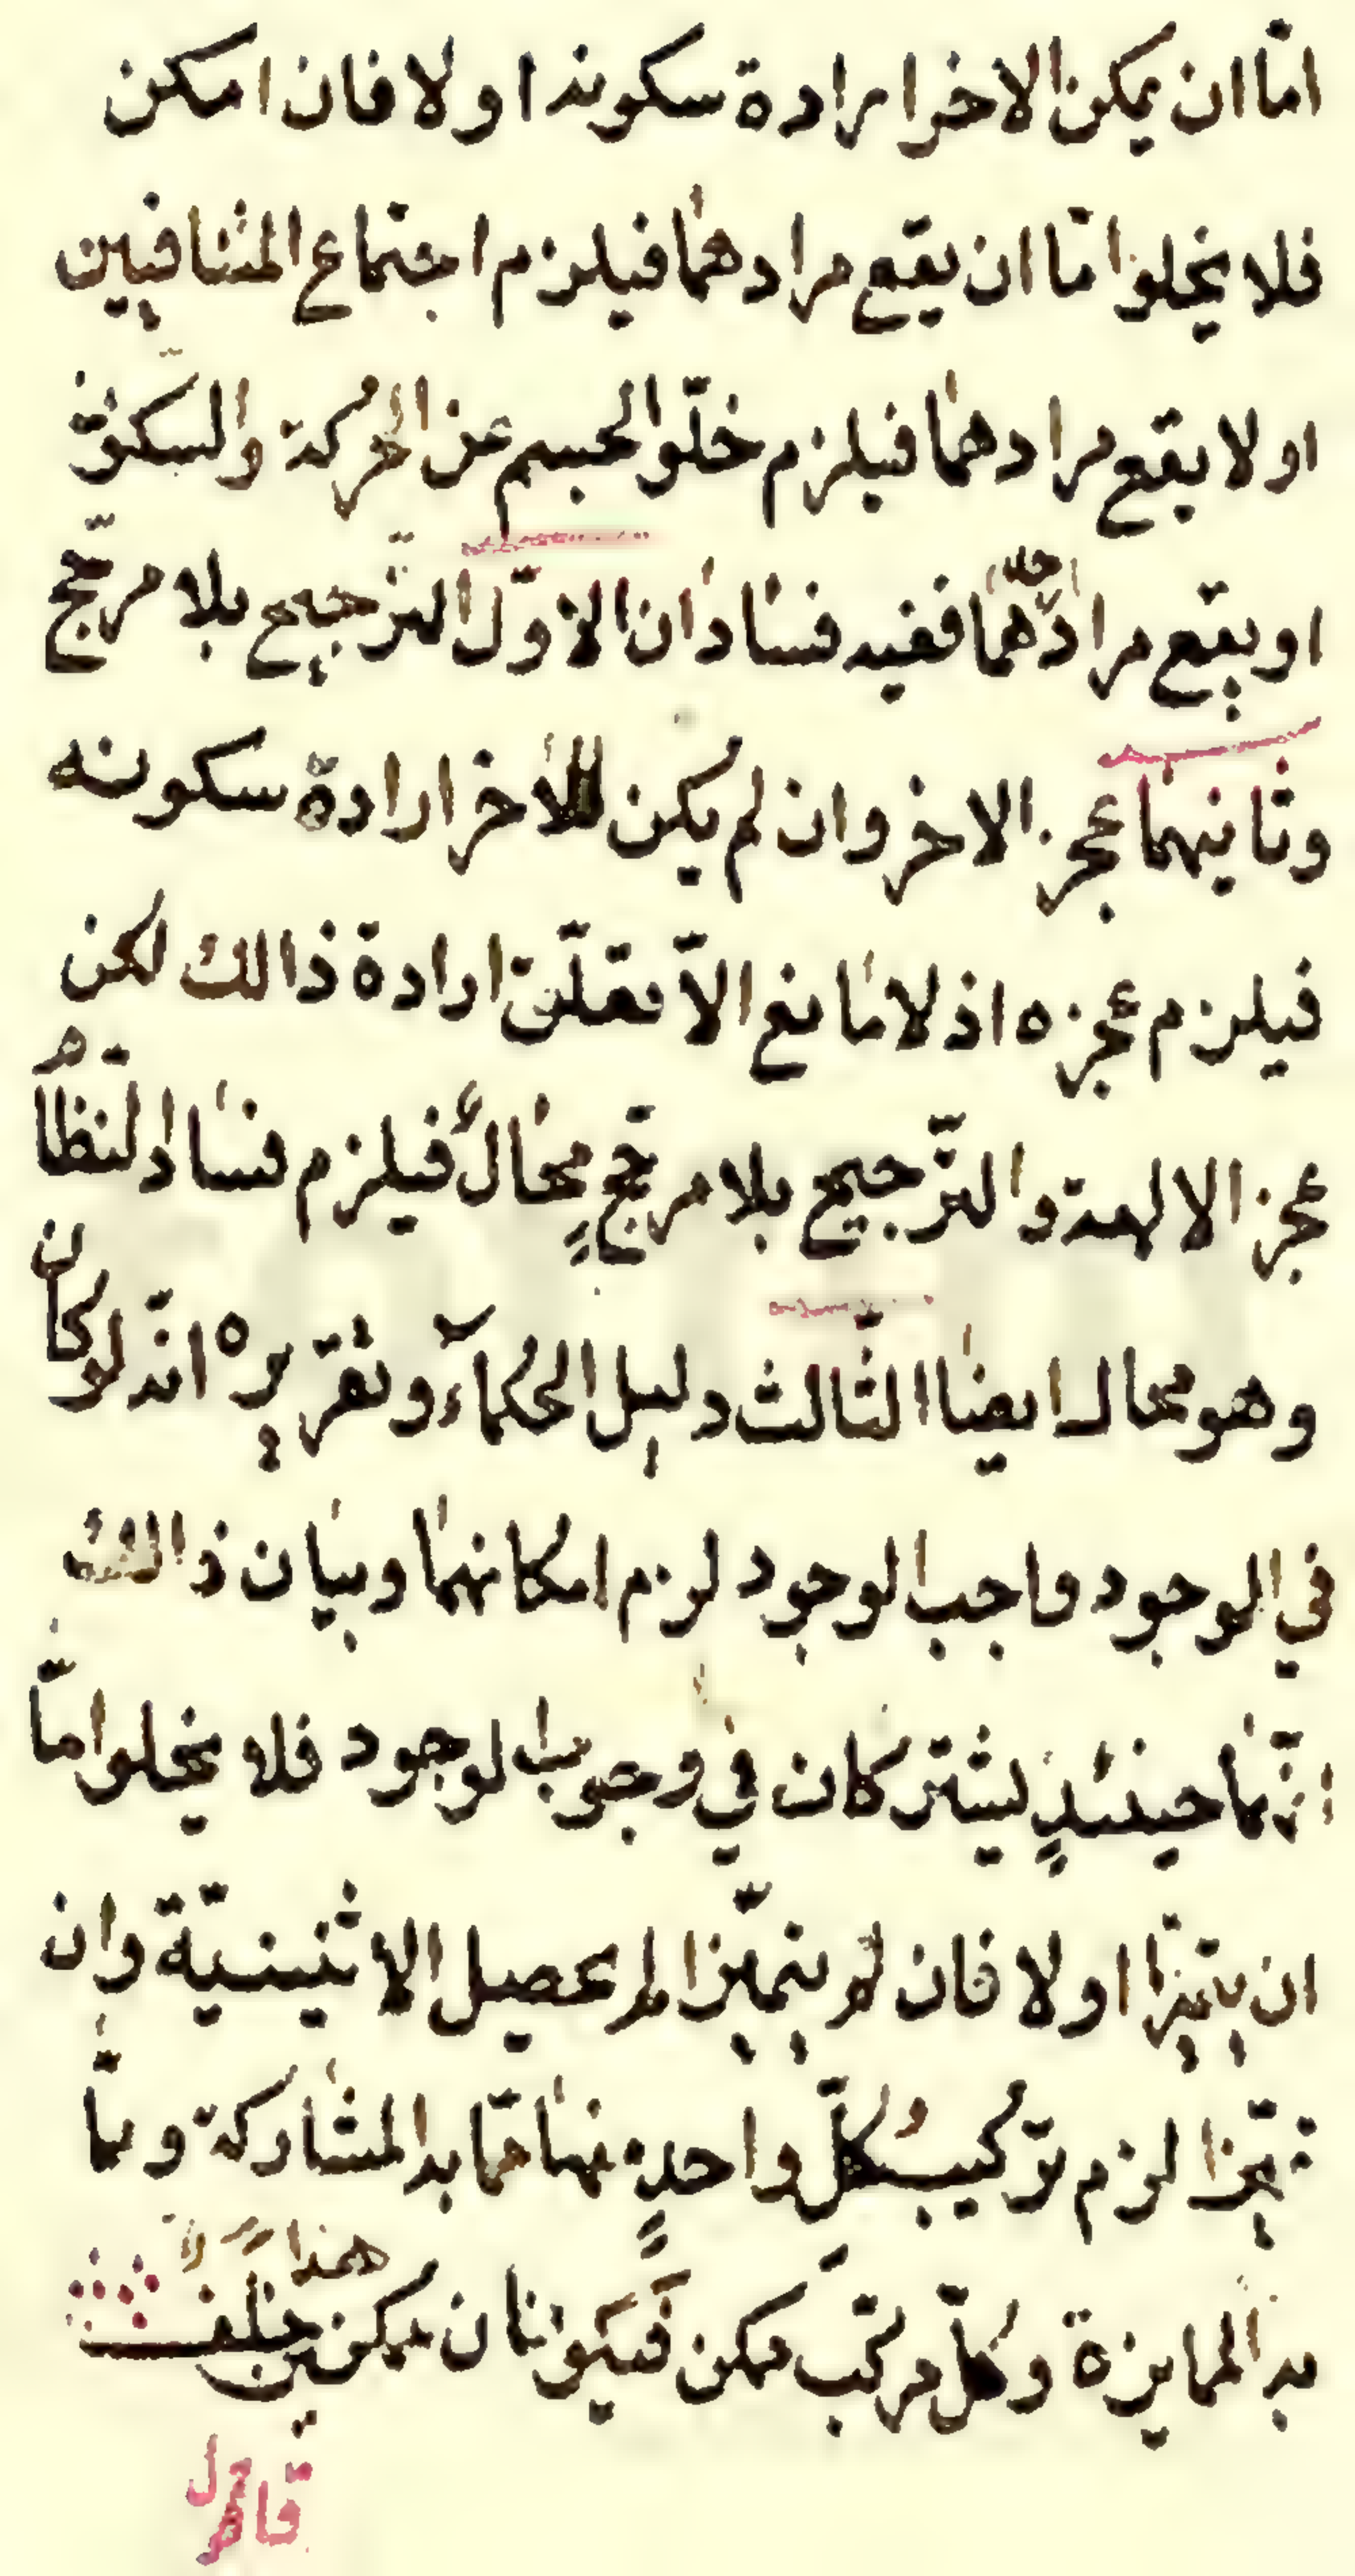 امّا ان يمكن الاخر ارادة سكونه او لا فان امكن
فلا يخلوا امّا ان يقع مرادهما فيلزم اجتماع المتنافيين
او لا يقع مرادهما فيلزم خلّو الجسم عن الحركة والسكون
او يقع مراد احدهما ففيه فسادان الاوّل الترّجيح بلا مرجّح
وثانيهما عجز الاخر وان لم يكن للاخر ارادة سكونه
فيلزم عجزه اذ لا مانع الاّ تعلّق ارادة ذالك لكن
عجز الاله والترّجيح بلا مرجّحٍ محالٌ فيلزم فساد النّظام
وهو محال ايضا الثّالث دليل الحكمآء وتقرّيره انّه لو كان
في الوجود واجب الوجود لزم امكانهما وبيان ذالك
انّهما حينئذٍ يشتركان في وجوب الوجود فلا يخلوا امّا
ان يتميّزا او لا فان لم يتميّزا لم يحصل الاثنينيّة وان
تميّزا لزم ترّكيب كلّ واحدٍ منهما ممّا به المشاركة وممّا
به الممايزة وكلّ مركّب ممكن فيكونان ممكنين هذا خلف
قامل